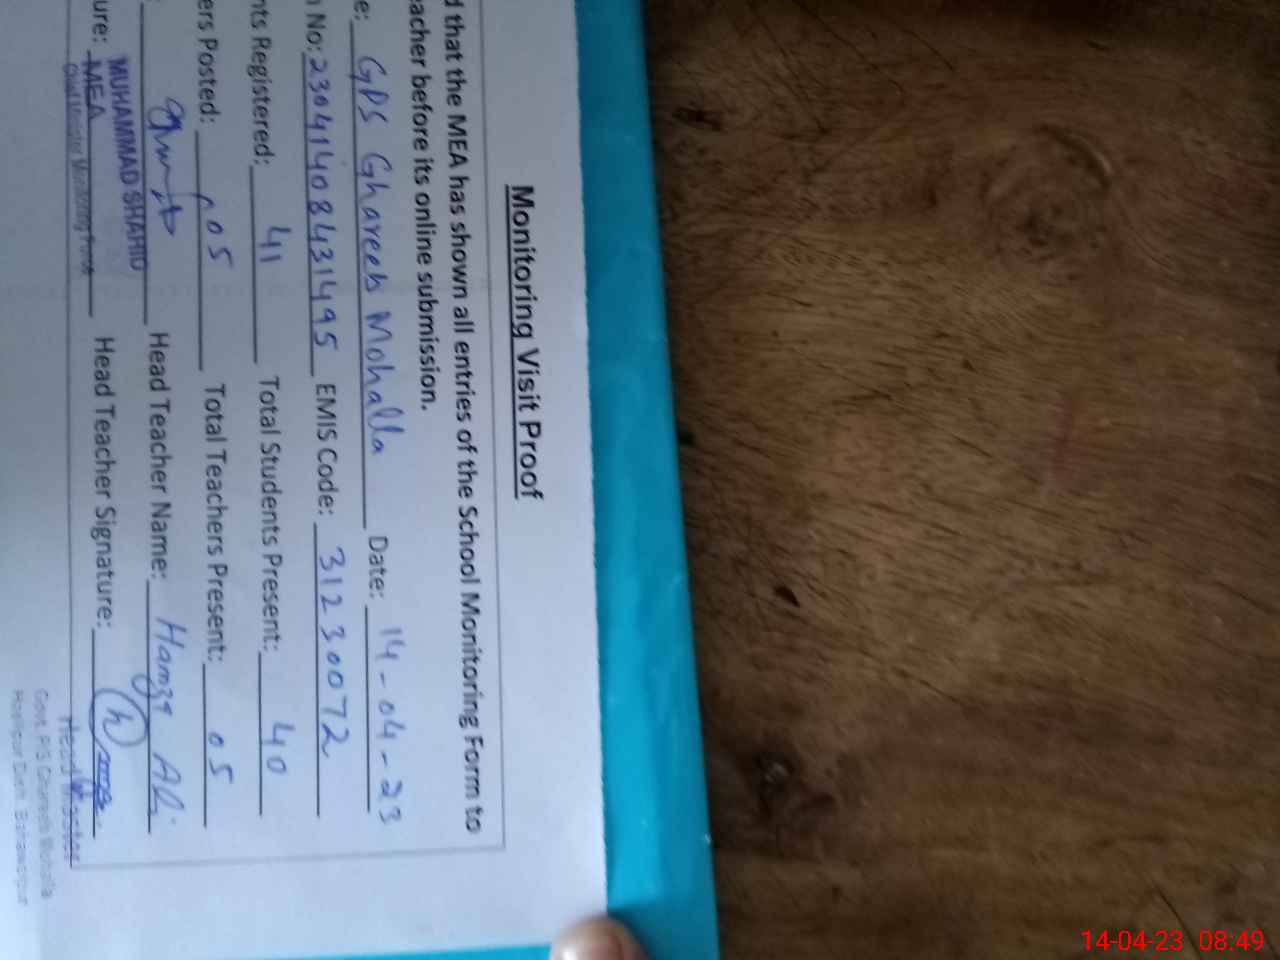 Monitoring Visit Proof
d that the MEA has shown all entries of the School Monitoring Form to
eacher before its online submission.
e: GPS Ghareeb Mohalla Date: 14-04-23
n No: 23041408431495 EMIS Code: 31230072
nts Registered: 41 Total Students Present: 40
ers Posted: 05 Total Teachers Present: 05
: Head Teacher Name: Hamza Ali
ure: MEA Head Teacher Signature:
MUHAMMAD SHAHID
Chief Minister Monitoring Force
Head Master
Govt. P/S Ghareeb Mohalla
Hasilpur Distt. Bahawalpur
14-04-23 08:49